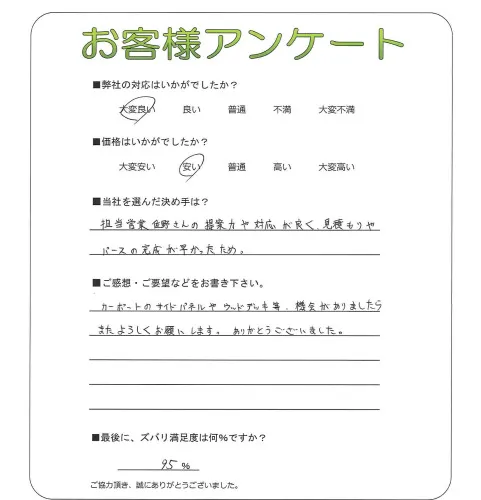 お客様アンケート
■弊社の対応はいかがでしたか？
大変良い 良い 普通 不満 大変不満
■価格はいかがでしたか？
大変安い 安い 普通 高い 大変高い
■当社を選んだ決め手は？
担当営業 魚野さんの 提案力や対応が良く、見積もりや
パースの完成が早かったため。
■ご感想・ご要望などをお書き下さい。
カーポートのサイドパネルや ウッドデッキ等、機会がありましたら
またよろしくお願いします。 ありがとうございました。
■最後に、ズバリ満足度は何％ですか？
95 %
ご協力頂き、誠にありがとうございました。